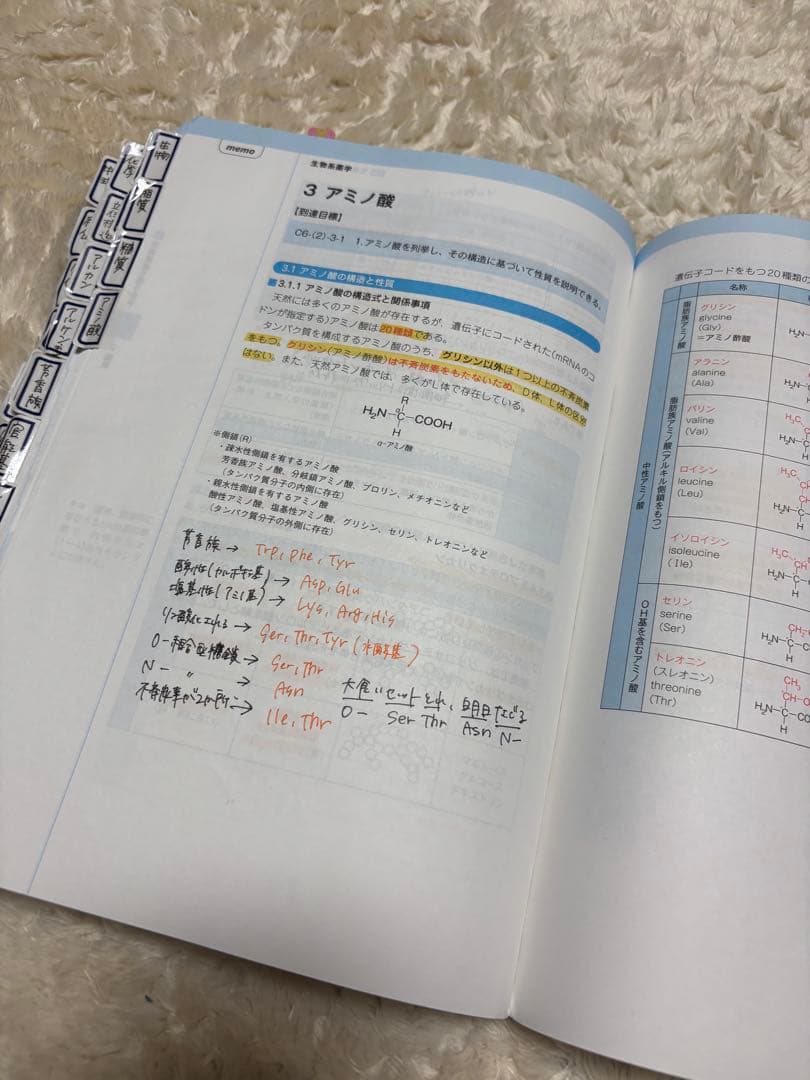 memo
生物系薬学
3 アミノ酸
【到達目標】
C6-(2)-3-1 1.アミノ酸を列挙し、その構造に基づいて性質を説明できる。
3.1 アミノ酸の構造と性質
3.1.1 アミノ酸の構造式と関係事項
天然には多くのアミノ酸が存在するが、遺伝子にコードされた(mRNAのコ
ドンが指定する)アミノ酸は20種類である。
タンパク質を構成するアミノ酸のうち、グリシン以外は1つ以上の不斉炭素
をもつ。グリシン(アミノ酢酸)は不斉炭素をもたないため、D体、L体の区別
はない。また、天然アミノ酸では、多くがL体で存在している。
R
H₂N-C-COOH
α
H
α-アミノ酸
※側鎖(R)
・疎水性側鎖を有するアミノ酸
芳香族アミノ酸、分岐鎖アミノ酸、プロリン、メチオニンなど
(タンパク質分子の内側に存在)
・親水性側鎖を有するアミノ酸
酸性アミノ酸、塩基性アミノ酸、グリシン、セリン、トレオニンなど
(タンパク質分子の外側に存在)
芳香族 → Trp, Phe, Tyr
酸性(カルボキシ基) → Asp, Glu
塩基性(アミノ基) → Lys, Arg, His
リン酸化される → Ser, Thr, Tyr (水酸基)
O-結合型糖鎖 → Ser, Thr
N- 〃 → Asn
不斉炭素が2か所 → Ile, Thr
大食いセットとれ、明日なくなる
O- Ser Thr Asn N-
生物
化学
糖質
糖質
アルカン
アミノ酸
アルケン
芳香族
遺伝子コードをもつ20種類の
名称
脂肪族アミノ酸
グリシン
glycine
(Gly)
=アミノ酢酸
中性アミノ酸
脂肪族アミノ酸(アルキル側鎖をもつ)
アラニン
alanine
(Ala)
バリン
valine
(Val)
ロイシン
leucine
(Leu)
イソロイシン
isoleucine
(Ile)
OH基を含むアミノ酸
セリン
serine
(Ser)
トレオニン
(スレオニン)
threonine
(Thr)